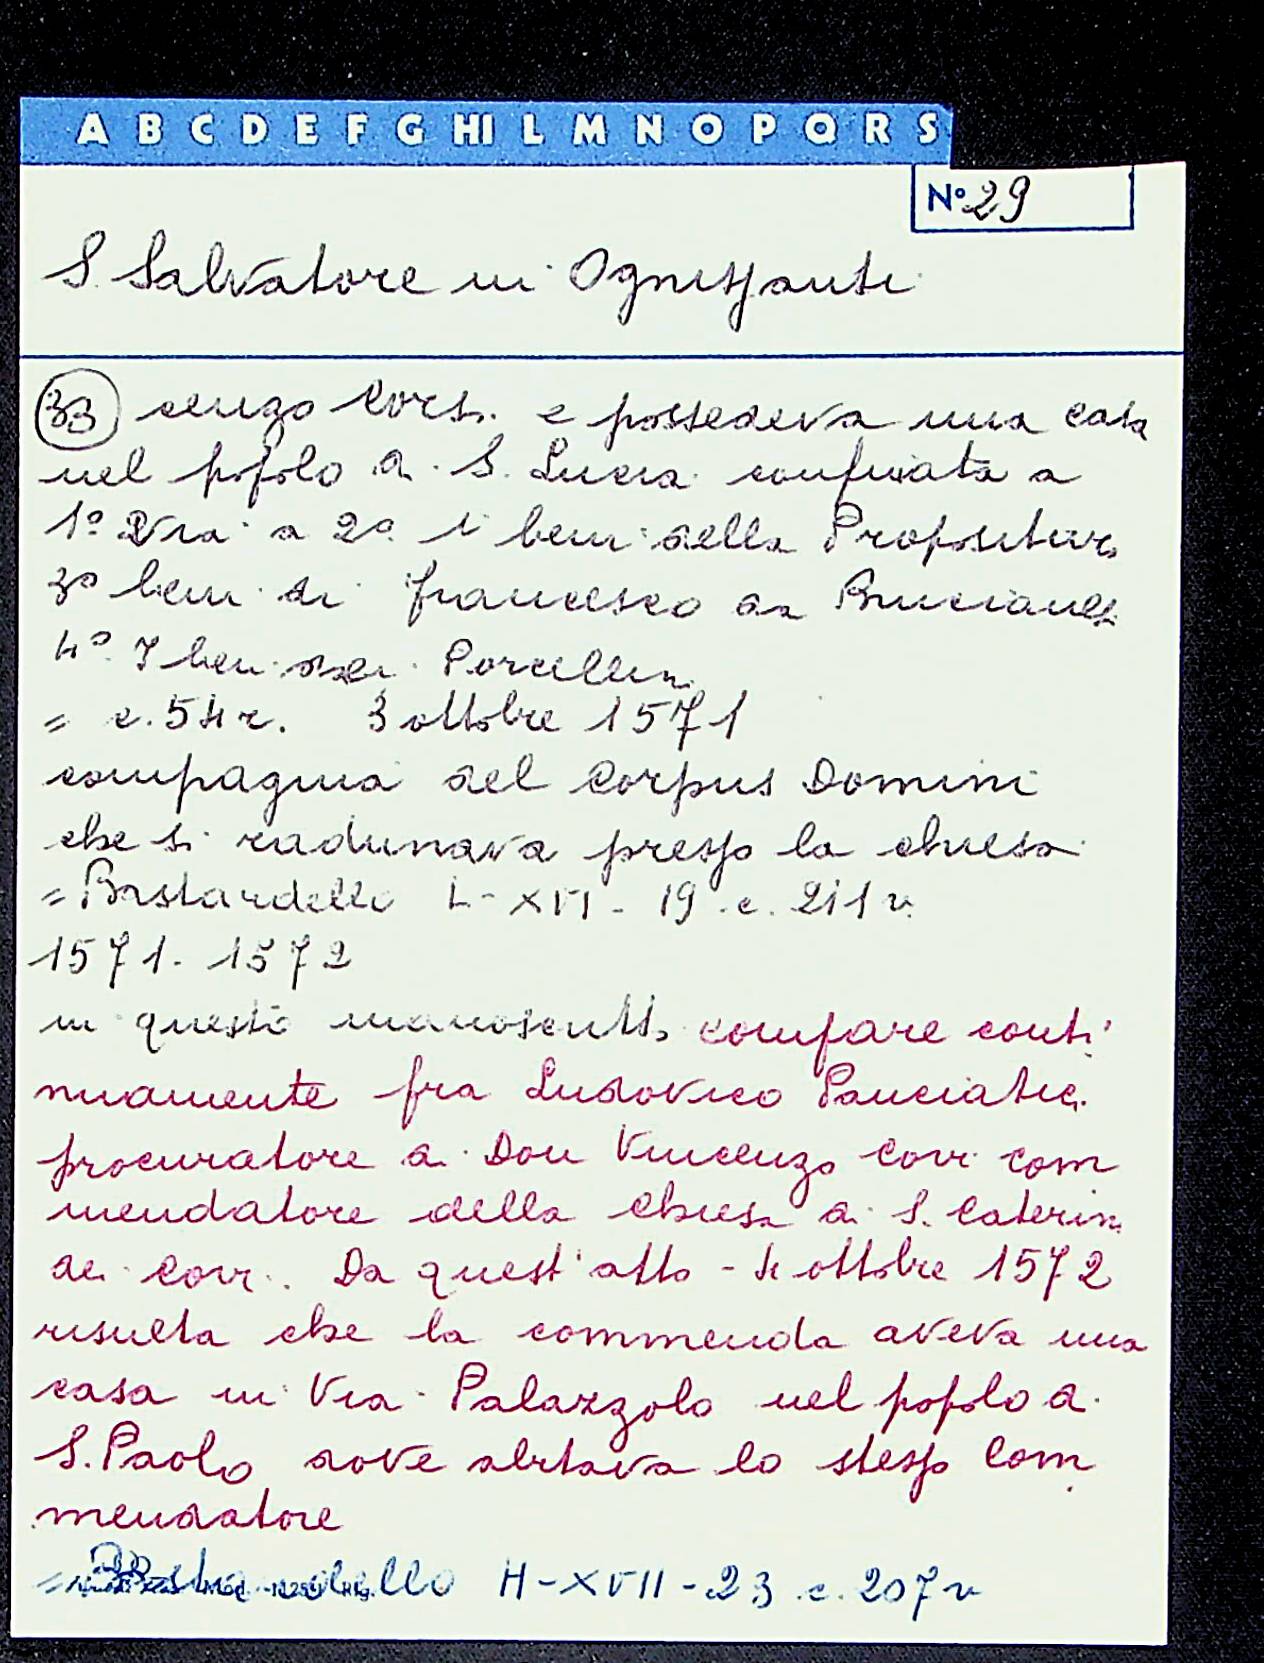 A B C D E F G HI L M N O P Q R S
N° 29
S. Salvatore in Ognissanti
33 cenzo Cors. e possedeva una casa
nel popolo di S. Lucia confinata a
1° Via a 2° i beni della Propositura
3° beni di Francesco da
4° I beni dei Porcellin
= c. 54 r. 3 ottobre 1571
compagnia del Corpus Domini
che si radunava presso la chiesa
= Bastardello L - XVI - 19 c. 211 v.
1571 - 1572
in questo manoscritto compare conti
nuamente fra Ludovico Panciatic.
procuratore di Don Vincenzo Covi com
mendatore della chiesa di S. Caterina
dei Covi. Da quest'atto - 4 ottobre 1572
risulta che la commenda aveva una
casa in Via Palazzolo nel popolo di
S. Paolo dove abitava lo stesso Com
mendatore
= Bastardello H - XVII - 23 c. 207 v